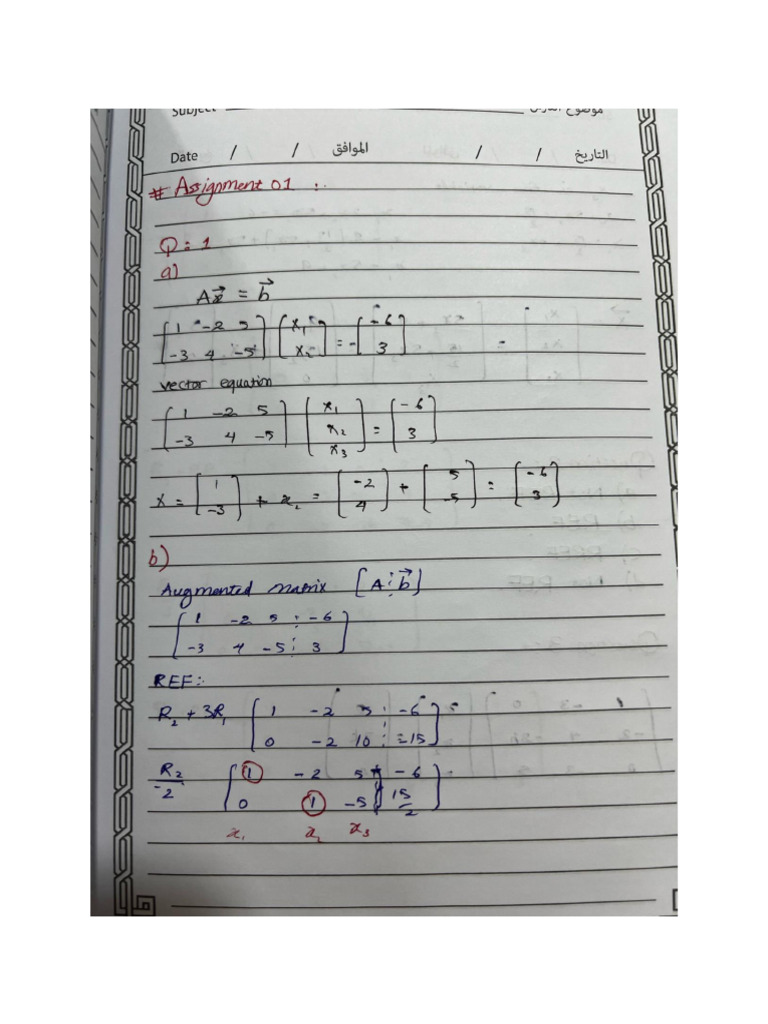 Subject موضوع الدرس
Date / / الموافق / / التاريخ
# Assignment 01 :.
Q:1
a)
Ax⃗ = b⃗
[1 -2 5; -3 4 -5] [x₁; x₂] = -[-6; 3] =
vector equation
[1 -2 5; -3 4 -5] [x₁; x₂; x₃] = [-6; 3]
x = [1; -3] + x₂ = [-2; 4] + [5; -5] = [-6; 3]
b)
Augmented matrix [A ⋮ b⃗]
[1 -2 5 ⋮ -6; -3 4 -5 ⋮ 3]
REF:-
R₂ + 3R₁ [1 -2 5 ⋮ -6; 0 -2 10 ⋮ -15]
R₂/-2 [1 -2 5 | -6; 0 1 -5 | 15/2]
x₁ x₂ x₃